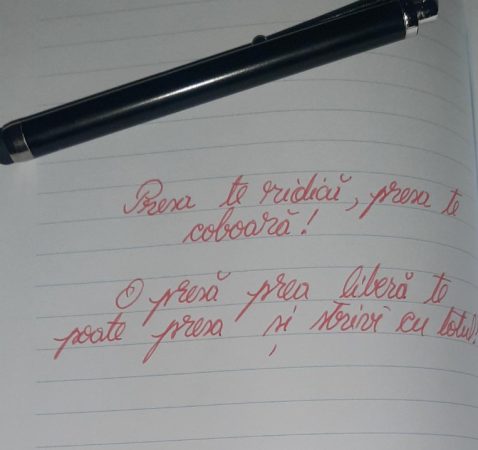 Presa te ridică, presa te
coboară!
O presă prea liberă te
poate presa și strivi cu totul!